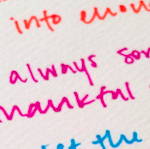 into enou
always so
thankful
let the